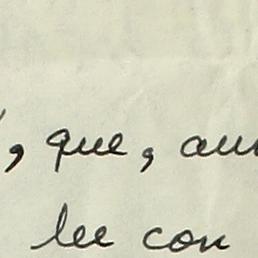 , que,
lee con